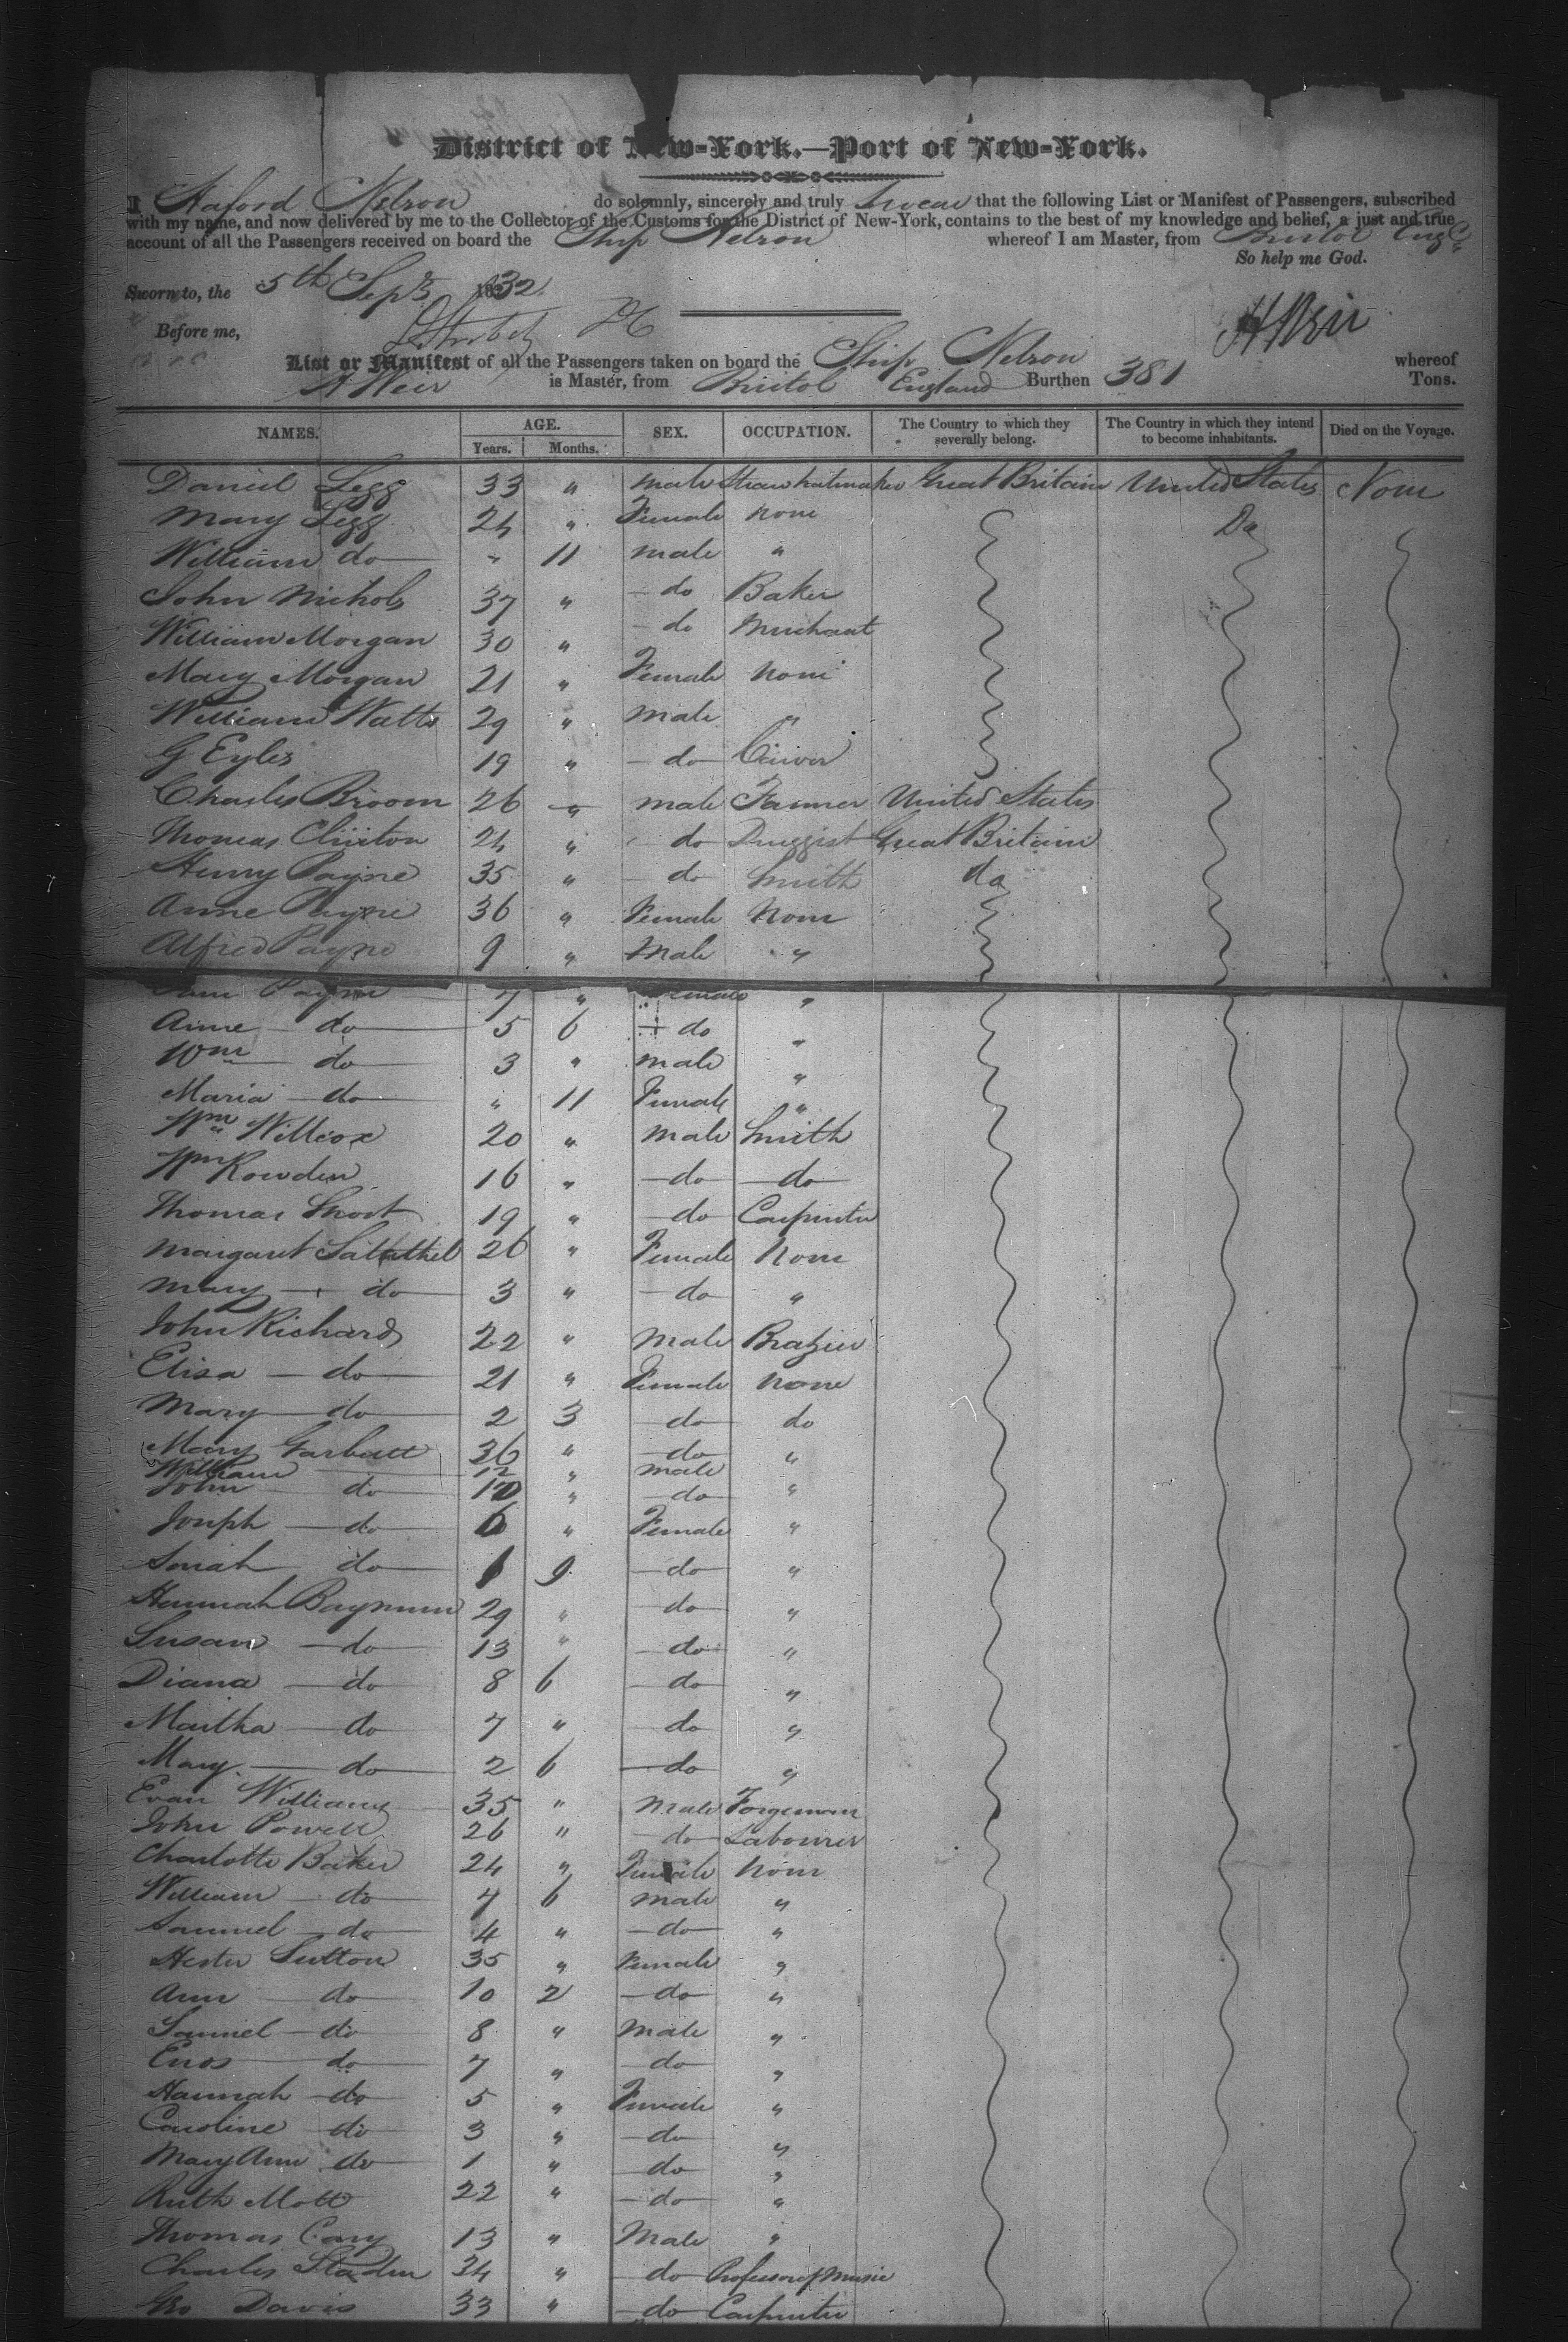 District of New-York.—Port of New-York.
I Axford Nelson do solemnly, sincerely and truly Swear that the following List or Manifest of Passengers, subscribed
with my name, and now delivered by me to the Collector of the Customs for the District of New-York, contains to the best of my knowledge and belief, a just and true
account of all the Passengers received on board the Ship Nelson whereof I am Master, from Bristol Engd
So help me God.
Sworn to, the 5th Sept 1832.
Before me, A Weir
List or Manifest of all the Passengers taken on board the Ship Nelson whereof
A Weir is Master, from Bristol England Burthen 381 Tons.
NAMES. AGE. Years. Months. SEX. OCCUPATION. The Country to which they severally belong. The Country in which they intend to become inhabitants. Died on the Voyage.
Daniel Legg 33 " male Straw hatmaker Great Britain United States None
Mary Legg 24 " Female None Do
William do " 11 male "
John Nichols 37 " do Baker
William Morgan 30 " do Merchant
Mary Morgan 21 " Female None
William Watts 29 " male "
G Eyles 19 " do Carver
Charles Broom 26 " male Farmer United States
Thomas Clinton 24 " do Druggist Great Britain
Henry Payne 35 " do Smith do
Anne Payne 36 " Female None
Alfred Payne 9 " Male "
Payne 7 " Female "
Anne do 5 6 do "
Wm do 3 " male "
Maria do " 11 Female "
Wm Willcox 20 " male Smith
Wm Rowden 16 " do do
Thomas Short 19 " do Carpenter
Margaret 26 " Female None
Mary do 3 " do "
John Richards 22 " Male Brazier
Elisa do 21 " Female None
Mary do 2 3 do do
Mary Garbutt 36 " do "
William 12 " male
John do 10 " do "
Joseph do 6 " Female "
Sarah do 1 9 do "
Hannah Baynum 29 " do "
Susan do 13 " do "
Diana do 8 6 do "
Martha do 7 " do "
Mary do 2 6 do "
Evan Williams 35 " Male Forgeman
John Powell 26 " do Labourer
Charlotte Baker 24 " Female None
William do 7 6 male "
Samuel do 4 " do "
Hester Sutton 35 " Female "
Ann do 10 2 do "
Samuel do 8 " Male "
Enos do 7 " do "
Hannah do 5 " Female "
Caroline do 3 " do "
Mary Ann do 1 " do "
Ruth Mott 22 " do "
Thomas Cary 13 " Male "
Charles 34 " do Professor of Music
Geo Davis 33 " do Carpenter